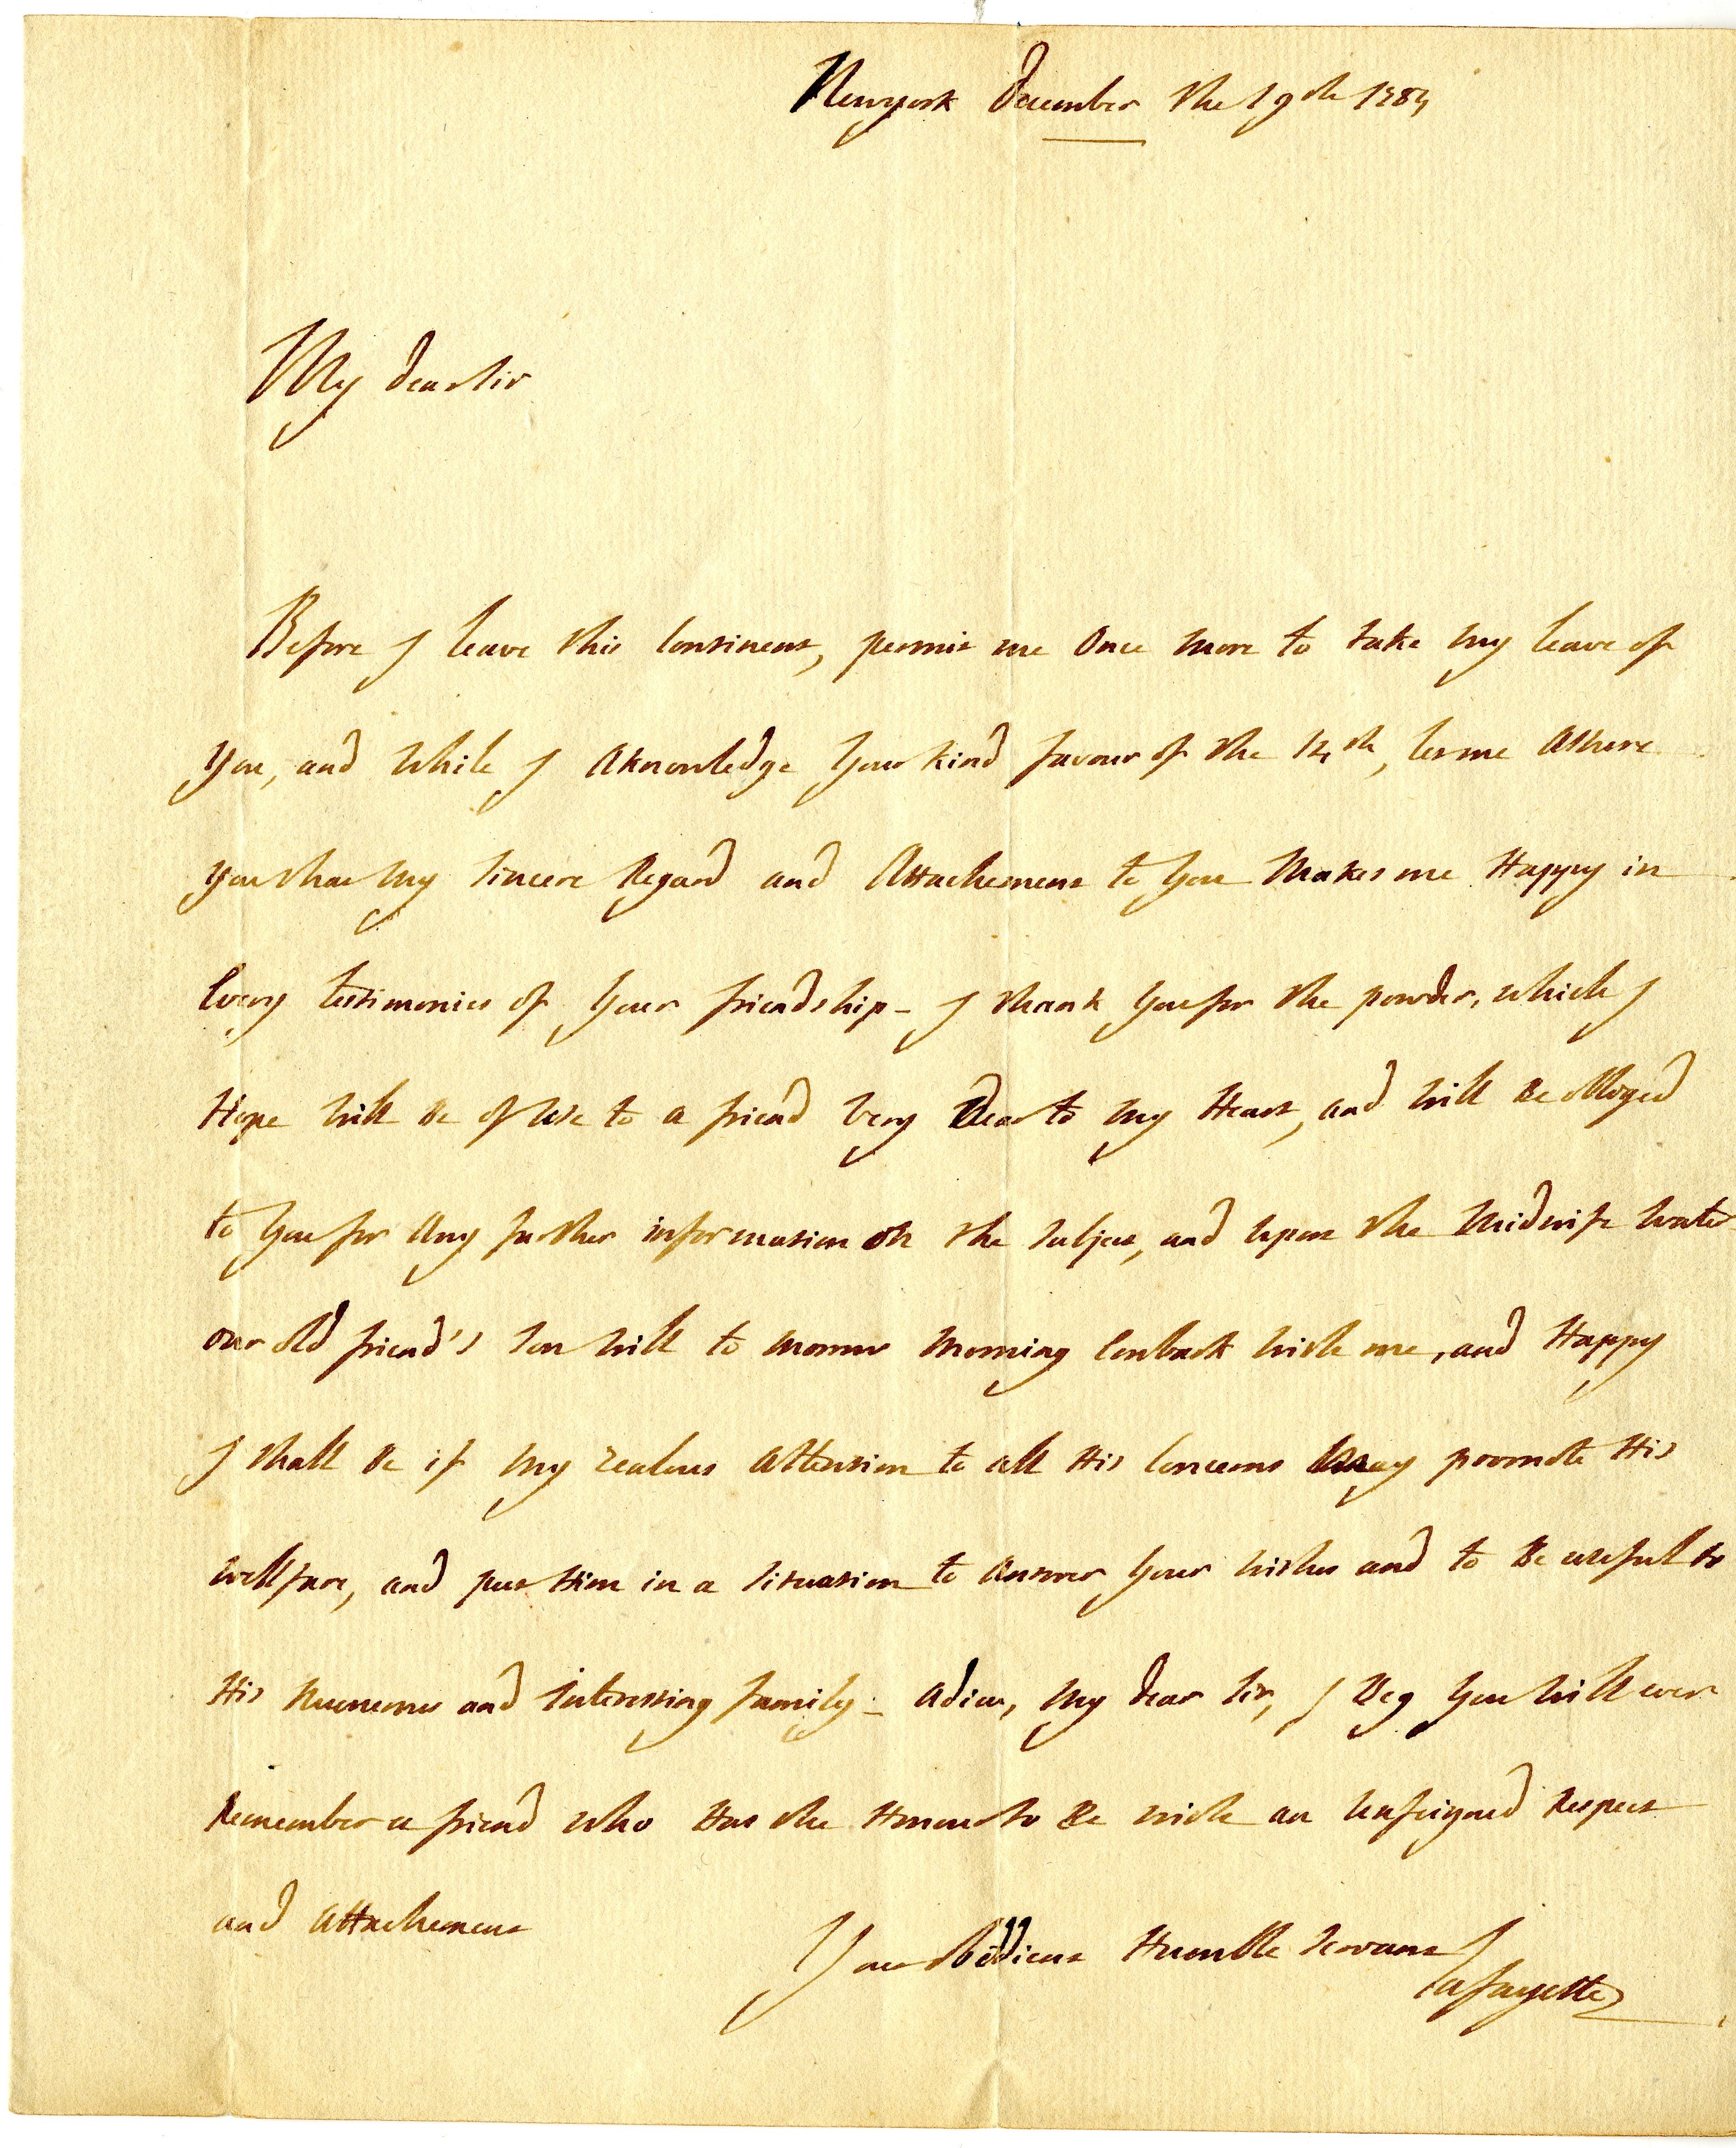 Newyork december the 19th 1784
My dear Sir
Before I leave this Continent, permit me Once More to take My leave of
You, and While I Aknowledge Your kind favour of the 14th, let me Assure
You that My Sincere Regard and Attachement to You Makes me Happy in
Every testimonies of Your friendship - I thank You for the powder, which I
Hope Will Be of Use to a friend Very Dear to My Heart, and Will Be obliged
to You for Any further information on the Subject, and Upon the Midwife Water
our old friend's Son Will to Morrow Morning Embark With me, and Happy
I Shall Be if My zealous Attention to all His Concerns May promote His
wellfare, and put Him in a Situation to Answer Your Wishes and to Be usefull to
His Numerous and Interesting family - Adieu, My dear Sir, I Beg You Will ever
Remember a friend who Has the Honour to Be with an Unfeigned Respect
and Attachement
Your obedient Humble Servant
Lafayette